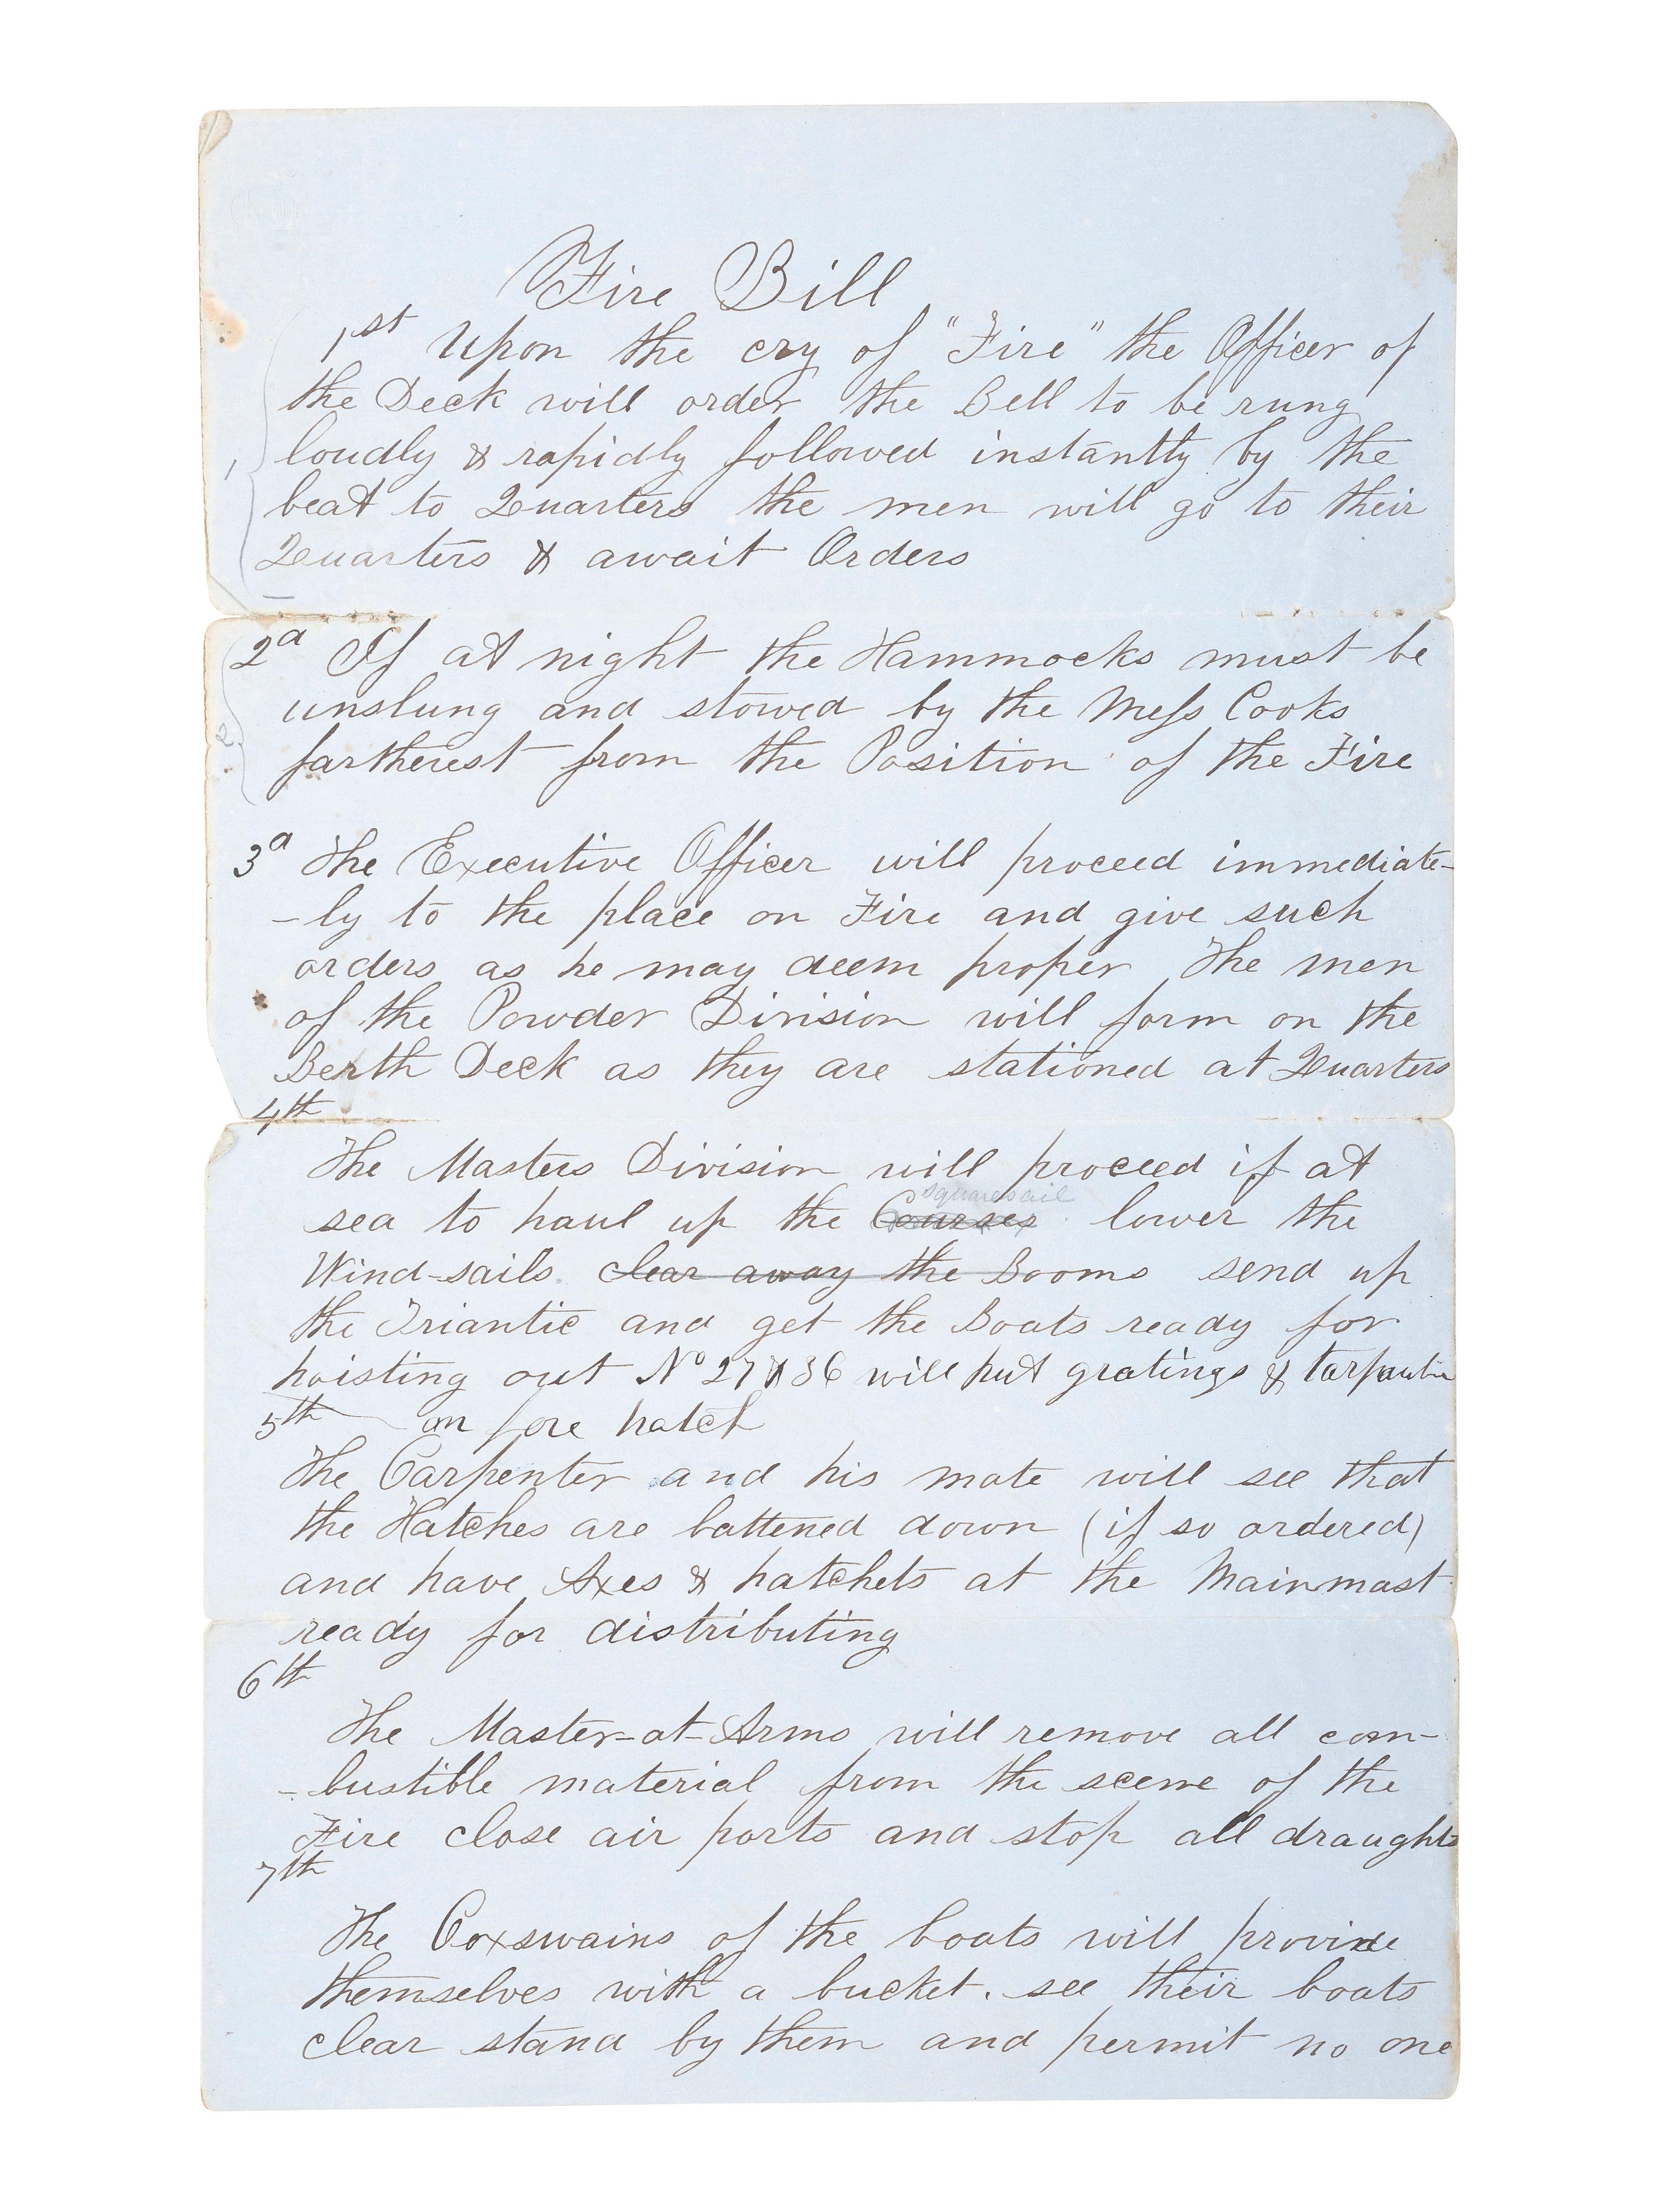 Fire Bill
1st Upon the cry of "Fire" the Officer of
the Deck will order the Bell to be rung
loudly & rapidly followed instantly by the
beat to Quarters the men will go to their
Quarters & await Orders
2d If at night the Hammocks must be
unslung and stowed by the Mess Cooks
fartherest from the Position of the Fire
3d The Executive Officer will proceed immediate-
-ly to the place on Fire and give such
orders as he may deem proper The men
of the Powder Division will form on the
Berth Deck as they are stationed at Quarters
4th
The Masters Division will proceed if at
squaresail
sea to haul up the Courses lower the
Wind-sails. clear away the Booms send up
the Triantic and get the Boats ready for
hoisting out No 27 & 36 will put gratings & tarpaulin
5th on fore hatch
The Carpenter and his mate will see that
the Hatches are battened down (if so ordered)
and have Axes & hatchets at the Mainmast
ready for distributing
6th
The Master-at-Arms will remove all com-
-bustible material from the scene of the
Fire close air ports and stop all draughts
7th
The Coxswains of the boats will provide
themselves with a bucket. see their boats
clear stand by them and permit no one